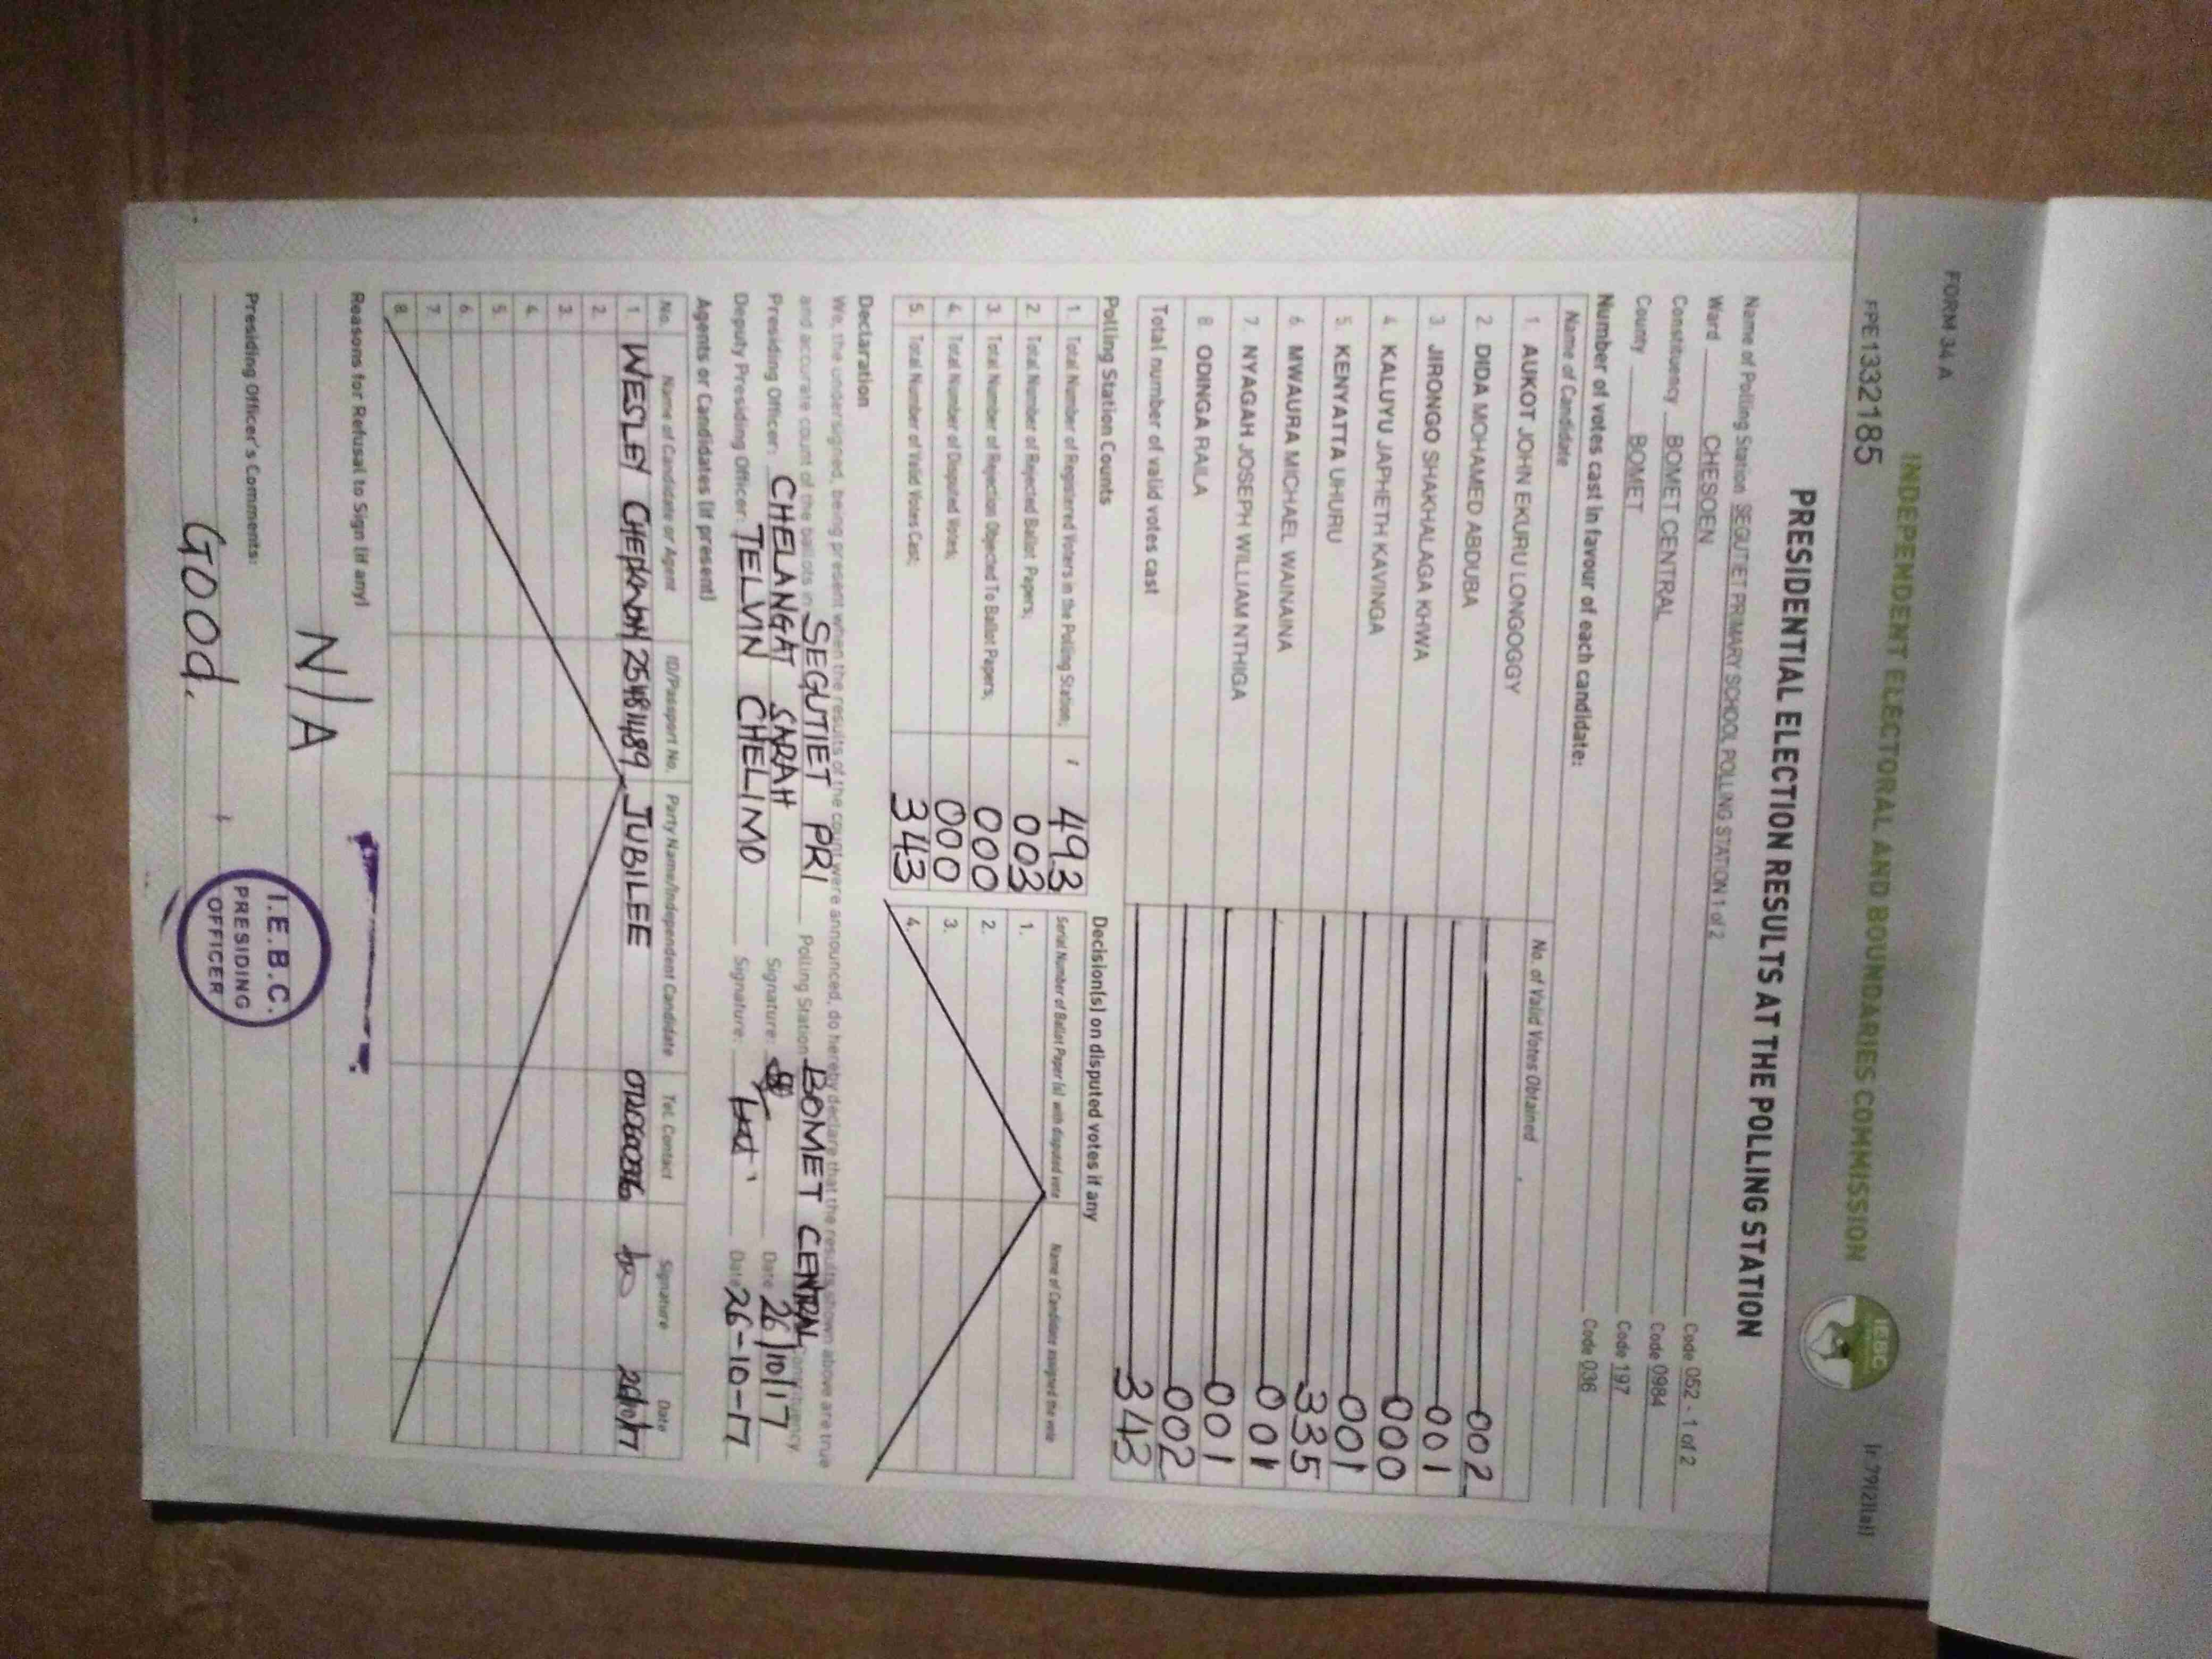 FORM 34 A
FPE1332185
INDEPENDENT ELECTORAL AND BOUNDARIES COMMISSION
IEBC
PRESIDENTIAL ELECTION RESULTS AT THE POLLING STATION
Name of Polling Station SEGUTIET PRIMARY SCHOOL POLLING STATION 1 of 2 Code 052 - 1 of 2
Ward CHESOEN Code 0984
Constituency BOMET CENTRAL Code 197
County BOMET Code 036
Number of votes cast in favour of each candidate:
Name of Candidate No. of Valid Votes Obtained
1. AUKOT JOHN EKURU LONGOGGY 002
2. DIDA MOHAMED ABDUBA 001
3. JIRONGO SHAKHALAGA KHWA 000
4. KALUYU JAPHETH KAVINGA 001
5. KENYATTA UHURU 335
6. MWAURA MICHAEL WAINAINA 001
7. NYAGAH JOSEPH WILLIAM NTHIGA 001
8. ODINGA RAILA 002
Total number of valid votes cast 343
Polling Station Counts
1. Total Number of Registered Voters in the Polling Station; 493
2. Total Number of Rejected Ballot Papers; 003
3. Total Number of Rejection Objected To Ballot Papers; 000
4. Total Number of Disputed Votes; 000
5. Total Number of Valid Votes Cast; 343
Decision(s) on disputed votes if any
Serial Number of Ballot Paper (s) with disputed vote Name of Candidate assigned the vote
1.
2.
3.
4.
Declaration
We, the undersigned, being present when the results of the count were announced, do hereby declare that the results shown above are true
and accurate count of the ballots in SEGUTIET PRI Polling Station BOMET CENTRAL Constituency
Presiding Officer: CHELANGAT SARAH Signature: Date 26/10/17
Deputy Presiding Officer: TELVIN CHELIMO Signature: Date 26-10-17
Agents or Candidates (if present)
No. Name of Candidate or Agent ID/Passport No. Party Name/Independent Candidate Tel. Contact Signature Date
1. WESLEY 25481489 JUBILEE
2.
3.
4.
5.
6.
7.
8.
Reasons for Refusal to Sign (if any)
N/A
Presiding Officer's Comments:
Good.
I.E.B.C.
PRESIDING
OFFICER